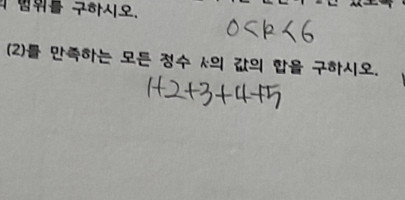 범위를 구하시오.
0<k<6
(2)를 만족하는 모든 정수 k의 값의 합을 구하시오.
1+2+3+4+5